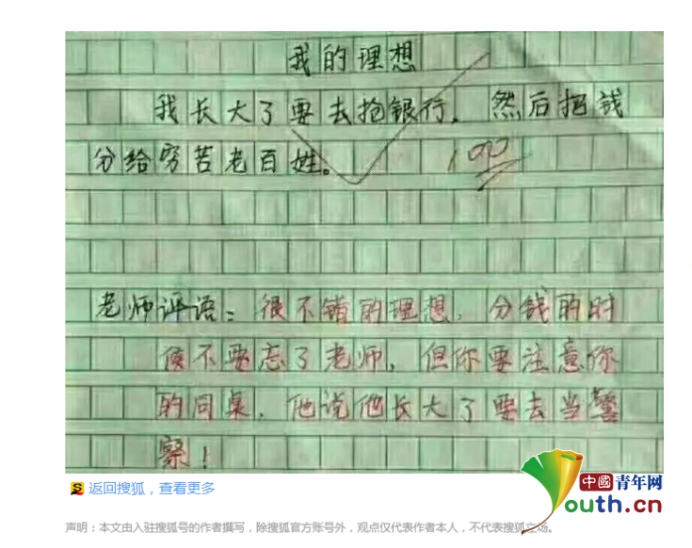 我的理想
我长大了要去抢银行，然后把钱
分给穷苦老百姓。
100
老师评语：很不错的理想，分钱的时
候不要忘了老师，但你要注意你
的同桌，他说他长大了要去当警
察！
中國青年网
Youth.cn
返回搜狐，查看更多
声明：本文由入驻搜狐号的作者撰写，除搜狐官方账号外，观点仅代表作者本人，不代表搜狐立场。